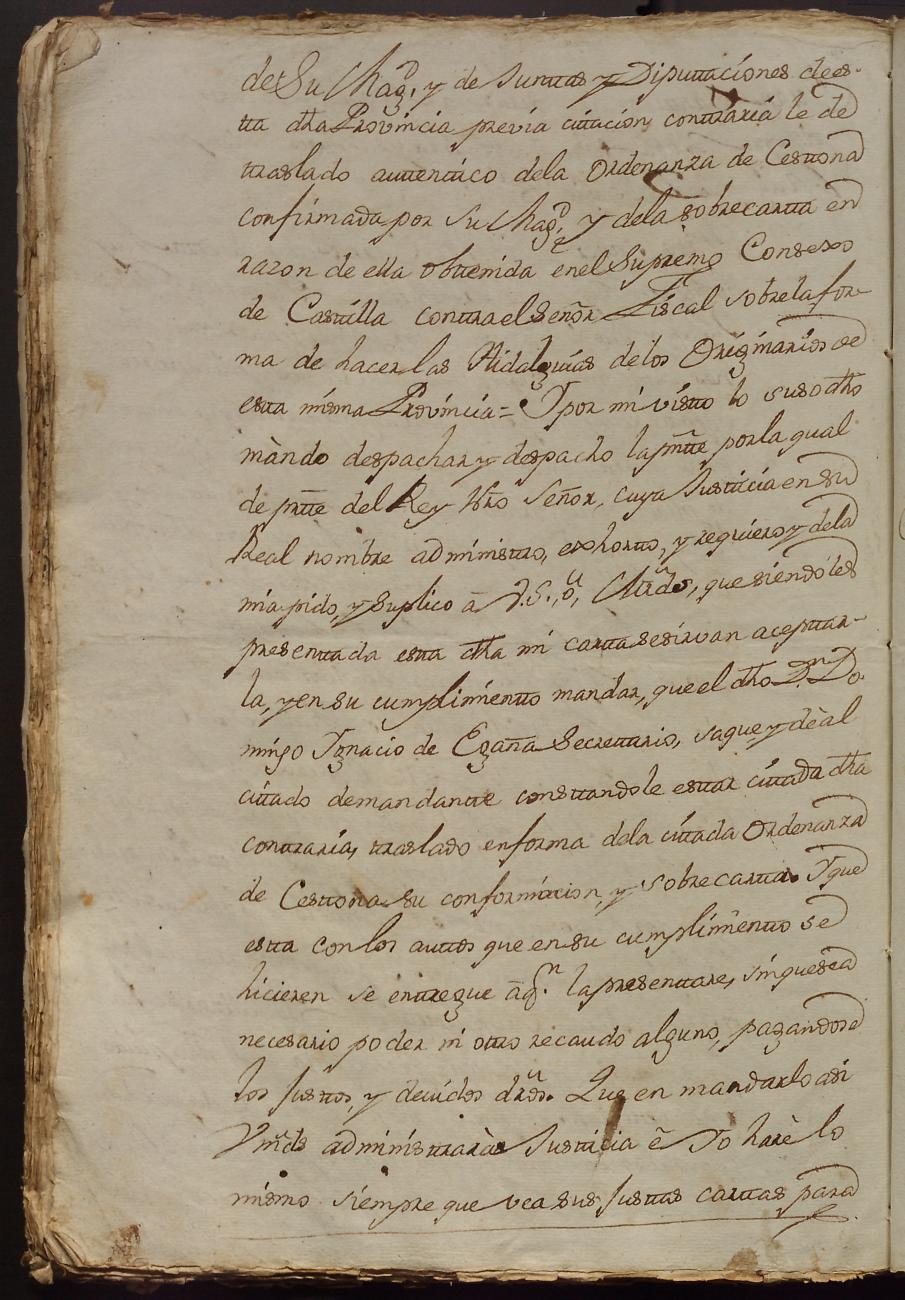 de Su Mag.^d, y de Juntas y Diputaciones de es-
ta dha Provincia previa citacion contraria le de
traslado autentico dela Ordenanza de Cestona
confirmada por Su Mag.^d, y dela sobrecarta en
razon de ella obtenida en el Supremo Consexo
de Castilla contra el Señor Fiscal sobre la for-
ma de hacer las Hidalguias de los Originarios de
esta misma Provincia = Y por mi visto lo susodho
màndo despachar y despacho la pñte por la qual
de pñte del Rey Nro Señor, cuya Justicia en su
Real nombre administro, exhorto, y requiero y dela
mia pido, y suplico â V.S.^a, ô, Mrds, que siendoles
presentada esta dha mi carta se sirvan aceptar-
la, y en su cumplimiento mandar, que el dho D.^n Do-
mingo Ygnacio de Egaña Secretario, saque y dè al
citado demandante constandole estar citada dha
contraria, traslado en forma dela citada Ordenanza
de Cestona su conformacion, y sobrecarta. Y que
esta con los autos que en su cumplimiento se
hicieren se entregue âq.^n la presentare, sin que sea
necesario poder ni otro recaudo alguno, pagandose
los justos, y devidos drôs. Que en mandarlo asi
Vmds administraràn Justicia ê Yo harè lo
mismo siempre que vea sus justas cartas para